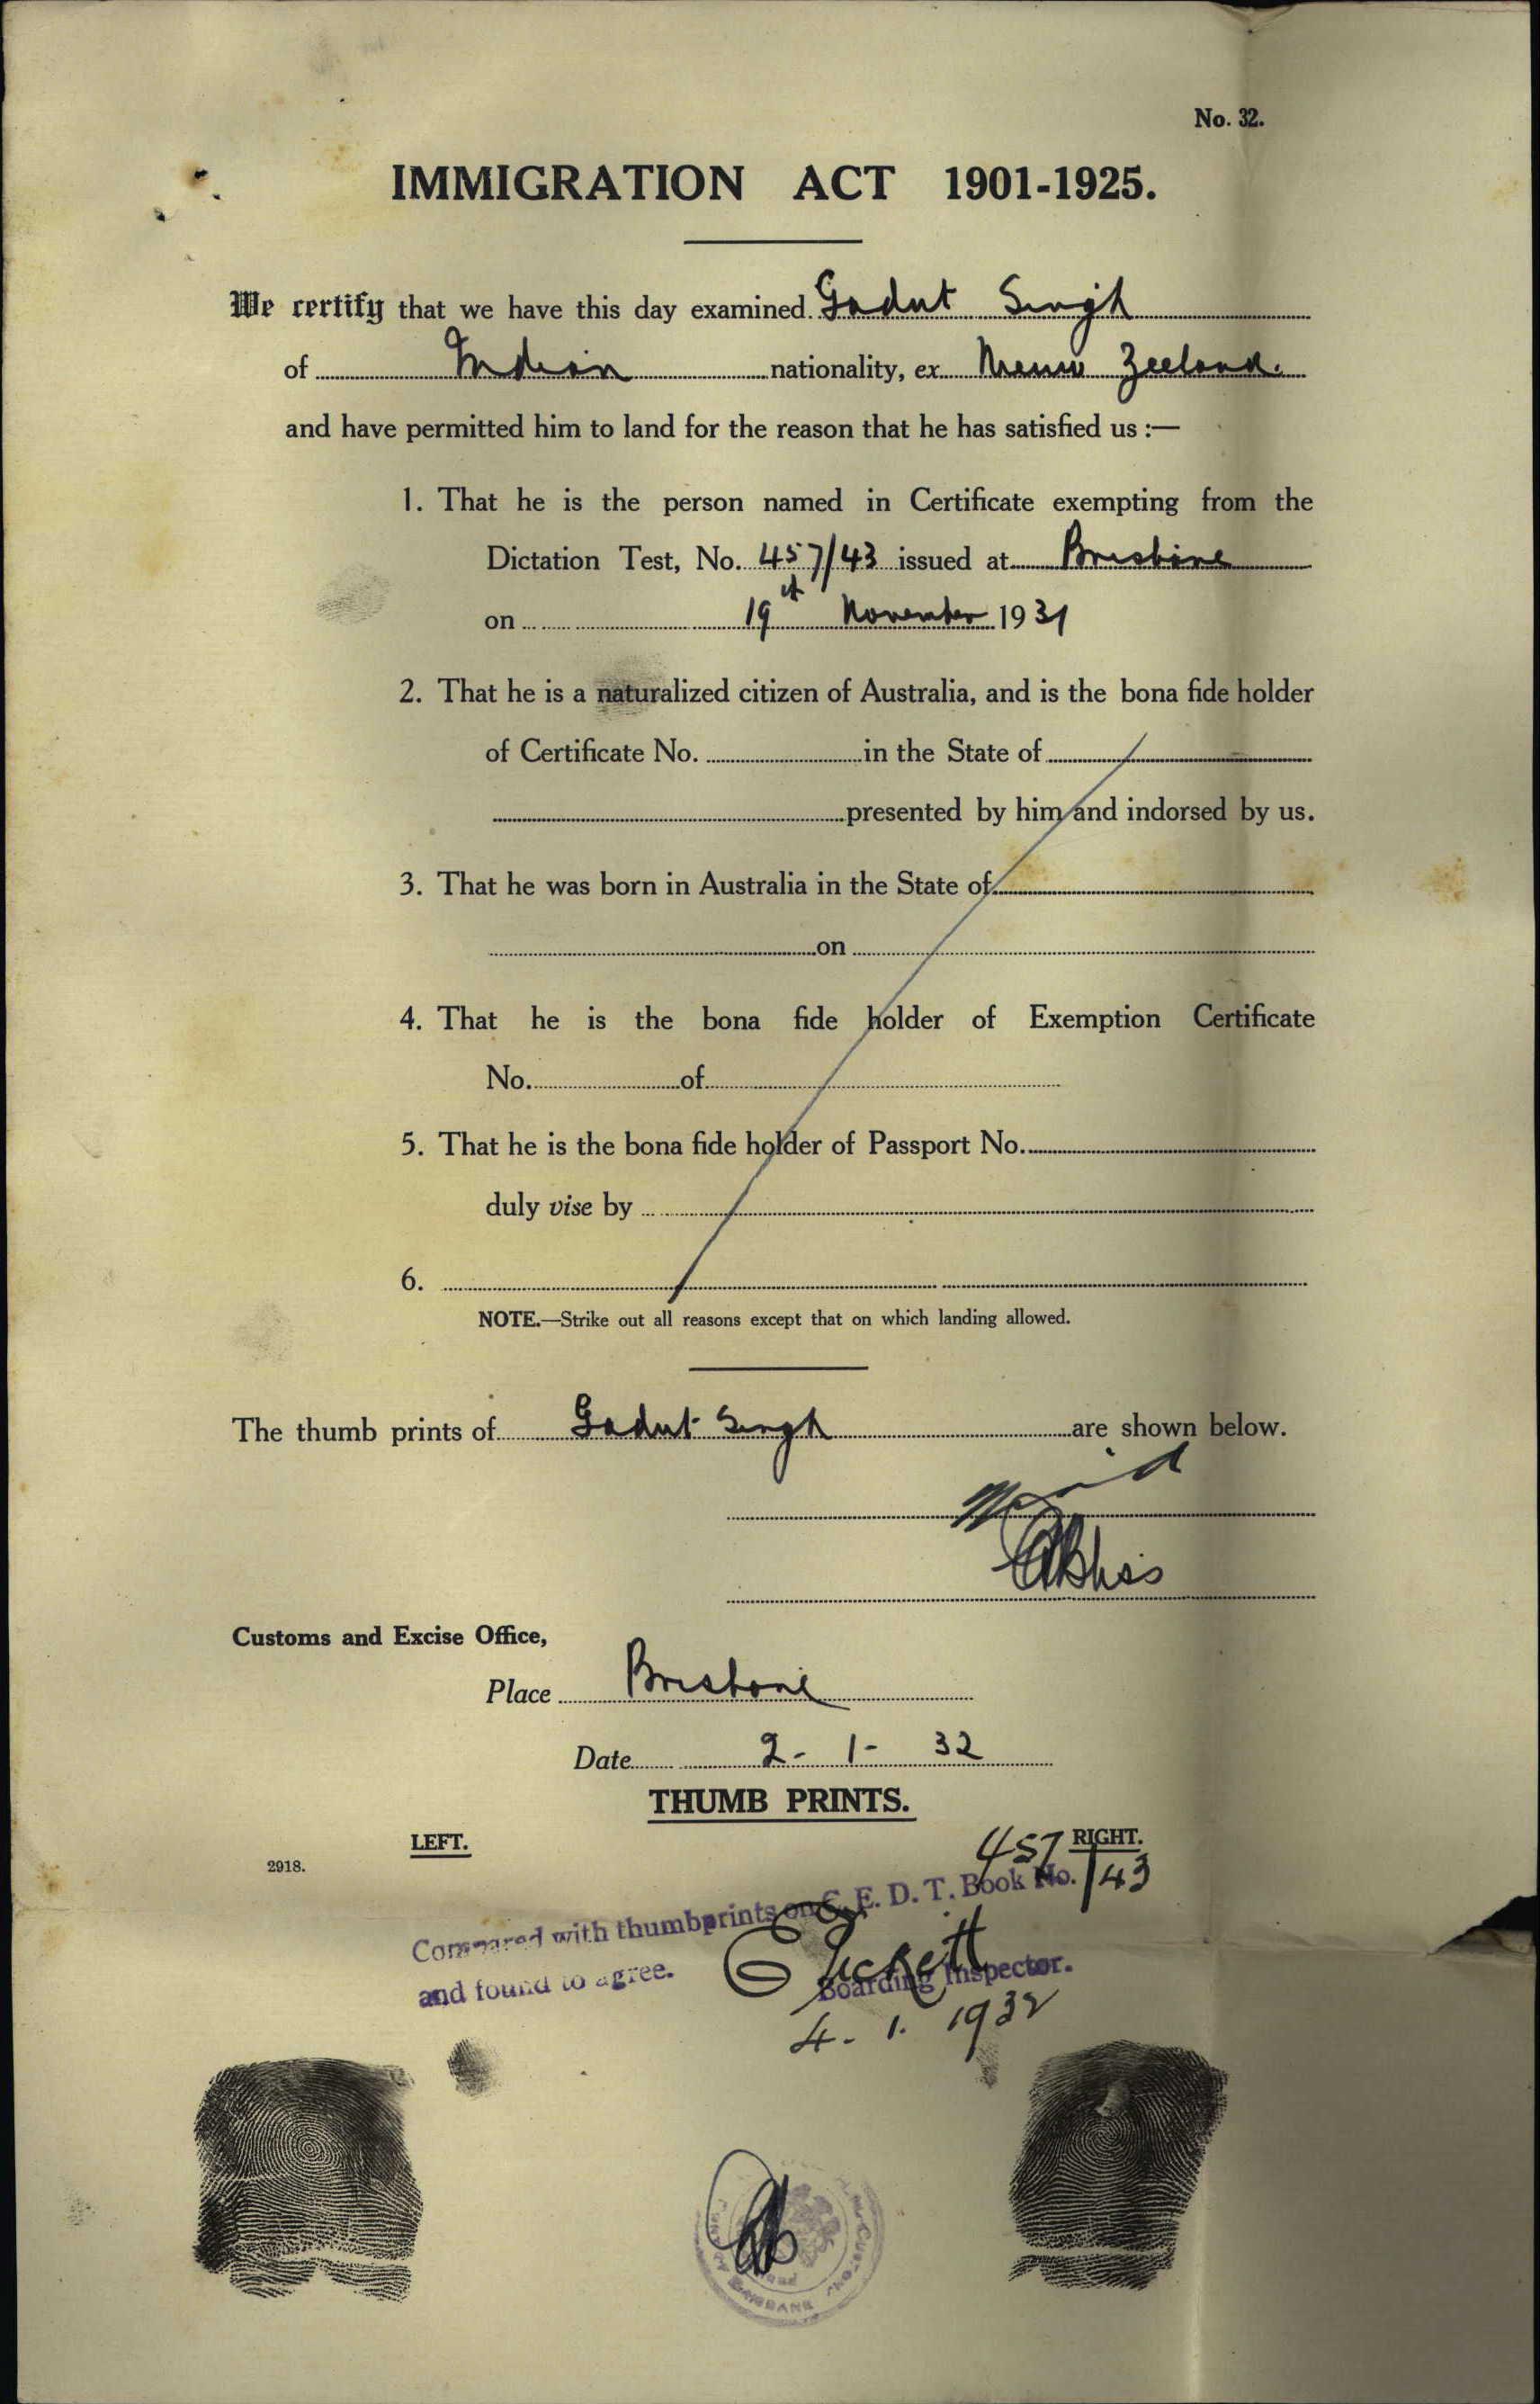 No. 32.
IMMIGRATION ACT 1901-1925.
We certify that we have this day examined Gadut Singh
of Indian nationality, ex Nieuw Zeeland.
and have permitted him to land for the reason that he has satisfied us :—
1. That he is the person named in Certificate exempting from the
Dictation Test, No. 457/43 issued at Brisbane
on 19th November 1931
2. That he is a naturalized citizen of Australia, and is the bona fide holder
of Certificate No. in the State of
presented by him and indorsed by us.
3. That he was born in Australia in the State of
on
4. That he is the bona fide holder of Exemption Certificate
No. of
5. That he is the bona fide holder of Passport No.
duly vise by
6.
NOTE.—Strike out all reasons except that on which landing allowed.
The thumb prints of Gadut Singh are shown below.
Customs and Excise Office,
Place Brisbane
Date 2-1-32
THUMB PRINTS.
LEFT.
RIGHT.
2918.
457/43
Compared with thumbprints on C. E. D. T. Book No.
and found to agree.
Boarding Inspector.
4. 1. 1932
BRISBANE